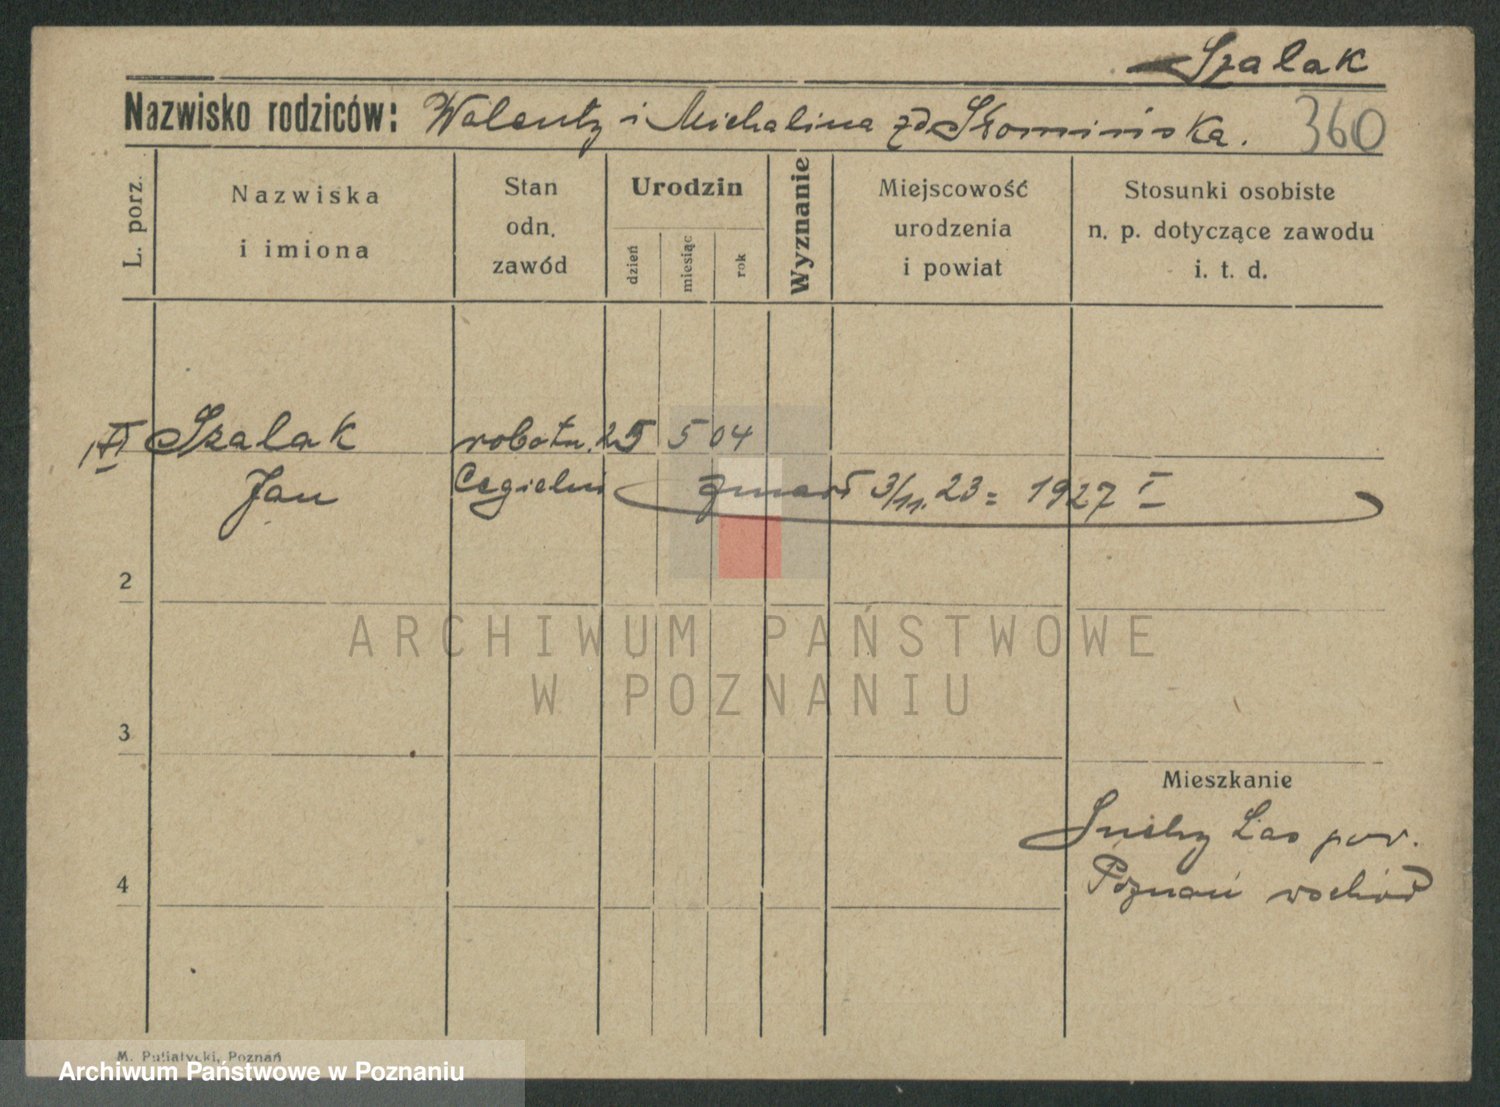 Szalak
Nazwisko rodziców: Walenty i Michalina zd Skomińska. 360
L. porz.
Nazwiska
i imiona
Stan
odn.
zawód
Urodzin
dzień
miesiąc
rok
Wyznanie
Miejscowość
urodzenia
i powiat
Stosunki osobiste
n. p. dotyczące zawodu
i. t. d.
Szalak robotn. 25 5 04
Jan Cegielni zmarł 3/11. 23 = 1927 I
2
ARCHIWUM PAŃSTWOWE
W POZNANIU
3
Mieszkanie
Suchy Las pow.
4
Poznań wschód
M. Putiatycki, Poznań
Archiwum Państwowe w Poznaniu